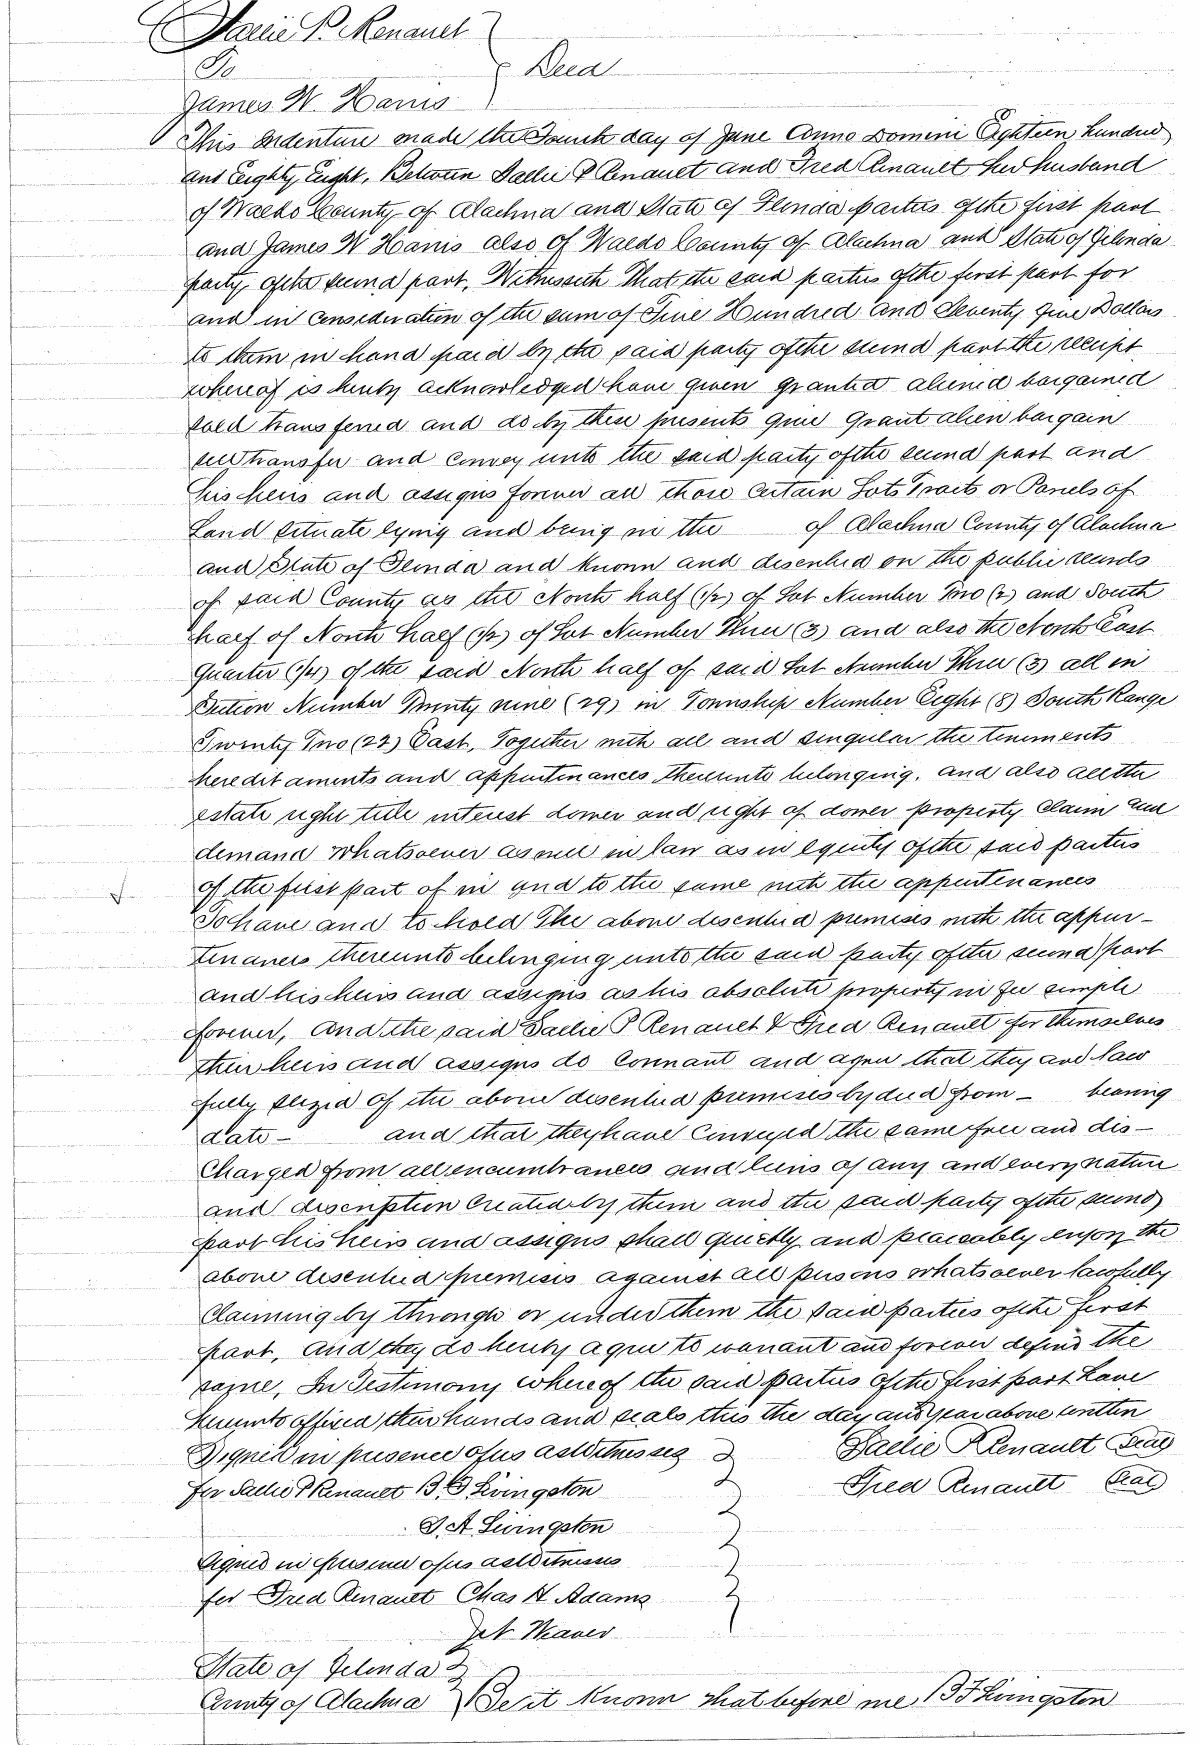 Sallie P. Renault
To } Deed
James W. Harris
This Indenture made the Fourth day of June Anno Domini Eighteen hundred
and Eighty Eight, Between Sallie P Renault and Fred Renault her husband
of Waldo County of Alachua and State of Florida parties of the first part
and James W Harris also of Waldo County of Alachua and State of Florida
party of the second part, Witnesseth That the said parties of the first part for
and in consideration of the sum of Five Hundred and Seventy five Dollars
to them in hand paid by the said party of the second part the receipt
whereof is hereby acknowledged have given granted aliened bargained
sold transferred and do by these presents give Grant alien bargain
sell transfer and convey unto the said party of the second part and
his heirs and assigns forever all those certain Lots Tracts or Parcels of
Land situate lying and being in the of Alachua County of Alachua
and State of Florida and known and described on the public records
of said County as the North half (1/2) of Lot Number Two (2) and South
half of North half (1/2) of Lot Number Three (3) and also the North East
Quarter (1/4) of the said North half of said Lot Number Three (3) all in
Section Number Twenty nine (29) in Township Number Eight (8) South Range
Twenty Two (22) East, Together with all and singular the tenements
heredit aments and appurtenances thereunto belonging. and also all the
estate right title interest dower and right of dower property claim and
demand whatsoever as well in law as in equity of the said parties
of the first part of in and to the same with the appurtenances
To have and to hold The above described premises with the appur-
tenances thereunto belonging unto the said party of the second part
and his heirs and assigns as his absolute property in fee simple
forever, And the said Sallie P Renault & Fred Renault for themselves
their heirs and assigns do covenant and agree that they are law
fully seized of the above described premises by deed from – bearing
date – and that they have conveyed the same free and dis-
charged from all encumbrances and liens of any and every nature
and description created by them and the said party of the second
part his heirs and assigns shall quietly and peaceably enjoy the
above described premises against all persons whatsoever lawfully
claiming by through or under them the said parties of the first
part, And they do hereby agree to warrant and forever defend the
same, In Testimony whereof the said parties of the first part have
hereunto affixed their hands and seals this the day and year above written
Signed in presence of us as Witnesses } Sallie P Renault Seal
for Sallie P Renault B.F. Livingston Fred Renault Seal
S. A. Livingston
Signed in presence of us as Witnesses
for Fred Renault Chas H Adams
Weaver
State of Florida }
County of Alachua } Be it known that before me B F Livingston